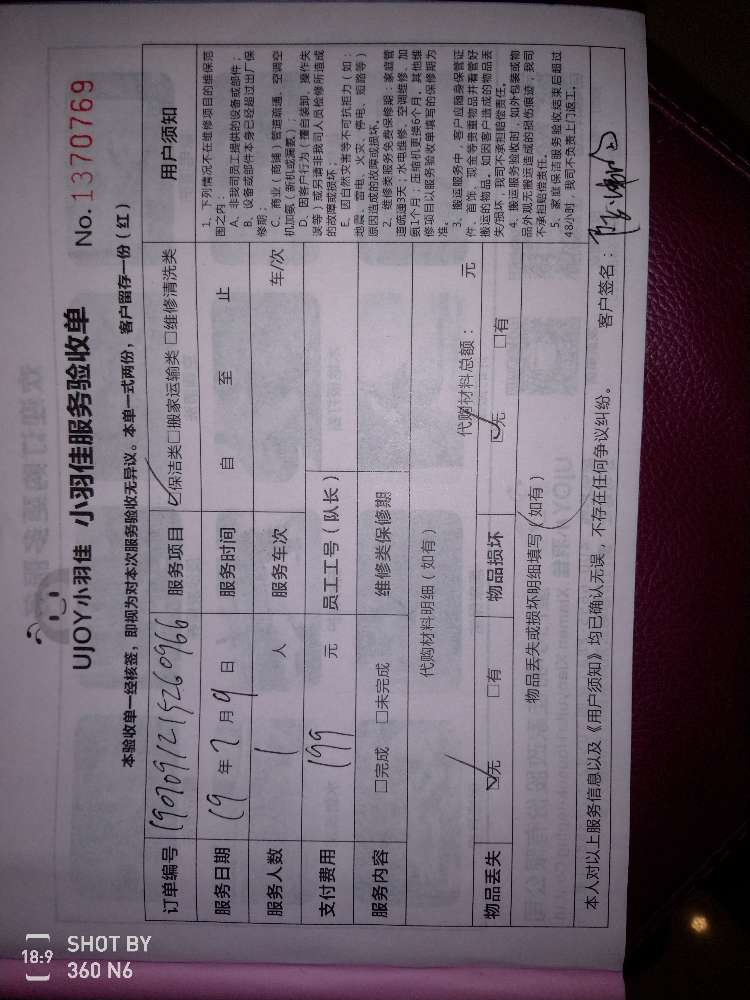 UJOY小羽佳 小羽佳服务验收单
No.1370769
本验收单一经核签，即视为对本次服务验收无异议。本单一式两份，客户留存一份（红）
订单编号 1907091215260966 服务项目 ☑保洁类□搬家运输类 □维修清洗类
服务日期 19 年 7 月 9 日 服务时间 自 至 止
服务人数 1 人 服务车次 车/次
支付费用 199 元 员工工号（队长）
服务内容 □完成 □未完成 维修类保修期
代购材料明细（如有）
代购材料总额： 元
物品丢失 ☑无 □有 物品损坏 ☑无 □有
物品丢失或损坏明细填写（如有）
用户须知
1、下列情况不在维修项目的维保范
围之内：
A、非我司员工提供的设备或部件；
B、设备或部件本身已经超过出厂保
修期；
C、商业（商铺）管道疏通、空调空
机加氨（新机或漏氨）；
D、因客户行为（擅自装卸，操作失
误等）或另请非我司人员检修所造成
的故障或损坏；
E、因自然灾害等不可抗拒力（如：
地震、雷电、火灾、停电、短路等）
原因造成的故障或损坏。
2、维修类服务免费保修期：家庭管
道疏通3天；水电维修、空调维修、加
氨1个月；压缩机更换6个月，其他维
修项目以服务验收单填写的保修期为
准。
3、搬运服务中，客户应随身保管证
件、首饰、现金等贵重物品并看管好
搬运的物品。如因客户造成的物品丢
失/损坏，我司不承担赔偿责任。
4、搬运服务验收时，如外包装或物
品外观无搬运造成的损伤痕迹，我司
不承担赔偿责任。
5、家庭保洁服务验收结束后超过
48小时，我司不负责上门返工。
本人对以上服务信息以及《用户须知》均已确认无误，不存在任何争议纠纷。 客户签名：
18:9 SHOT BY
360 N6